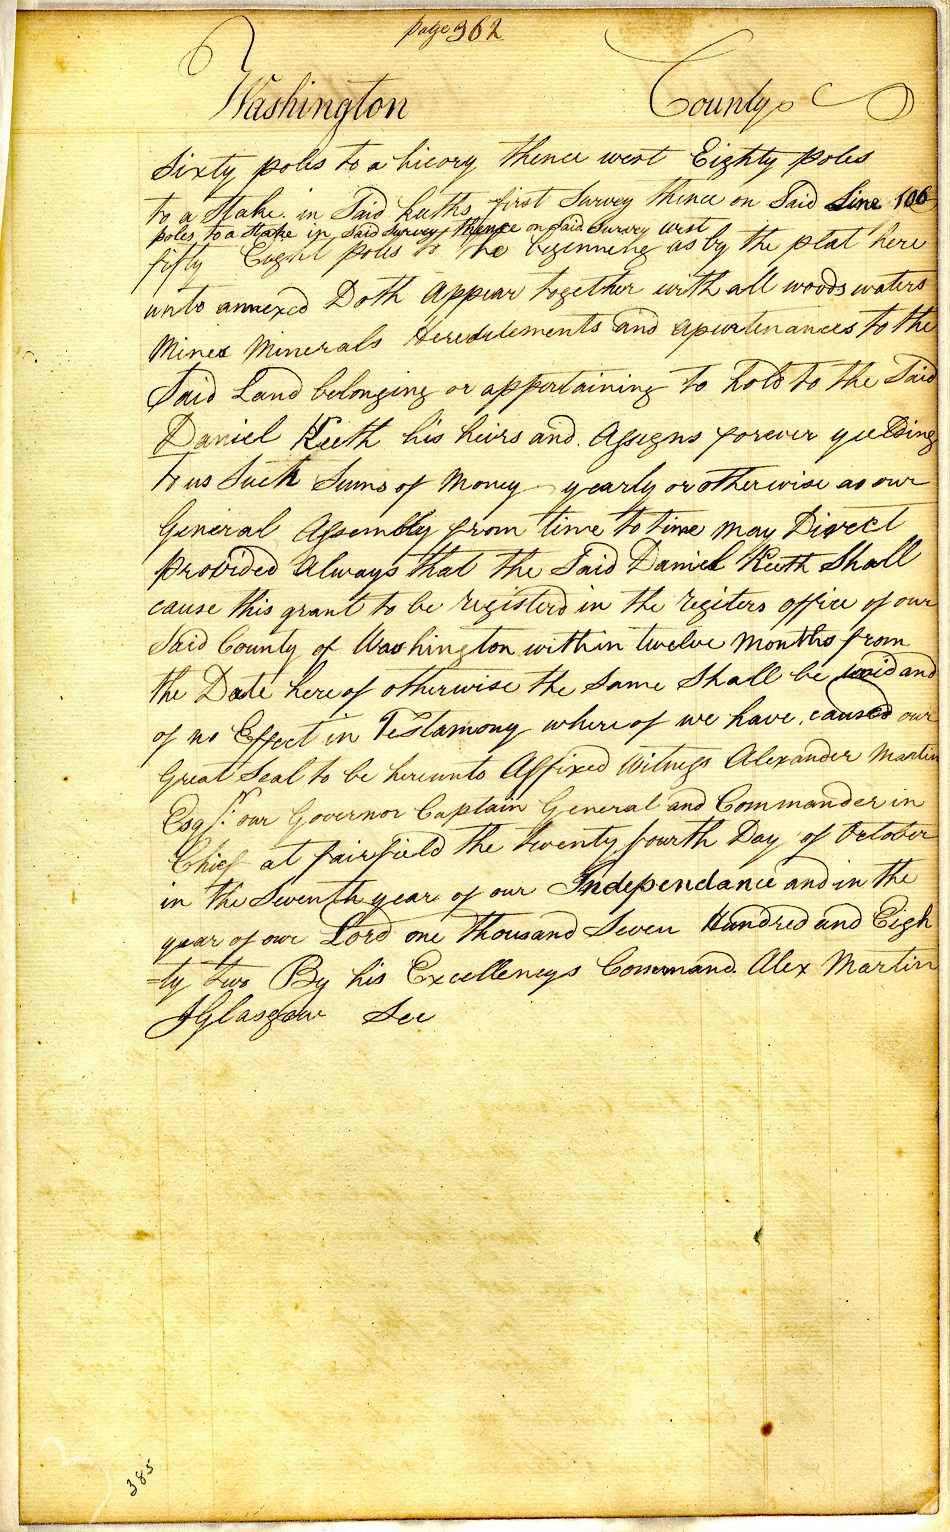 page 362
Washington County
Sixty poles to a hicory thence west Eighty poles
to a Stake in Said Keeths first Survey thence on Said Line 106
poles to a Stake in Said Survey thence on Said Survey west
fifty Eight poles to the beginning as by the plat here
unto annexed Doth Appear together with all woods waters
Mines Minerals Heredetements and apurtenances to the
Said Land belonging or appertaining to hold to the Said
Daniel Keeth his heirs and Assigns forever yielding
to us Such Sums of Money yearly or otherwise as our
General Assembly from time to time may Direct
provided Always that the Said Daniel Keeth Shall
cause this grant to be registerd in the regiters office of our
Said County of Washington within twelve Months from
the Date here of otherwise the Same Shall be void and
of no Effect in Testamony where of we have caused our
Great Seal to be hereunto Affixed Witness Alexander Martin
Esqr. our Governor Captain General and Commander in
Chief at fairfield the twenty fourth Day of October
in the Seventh year of our Independance and in the
year of our Lord one thousand Seven Hundred and Eigh
-ty two By his Excellencys Command Alex Martin
J Glasgow Sec
385